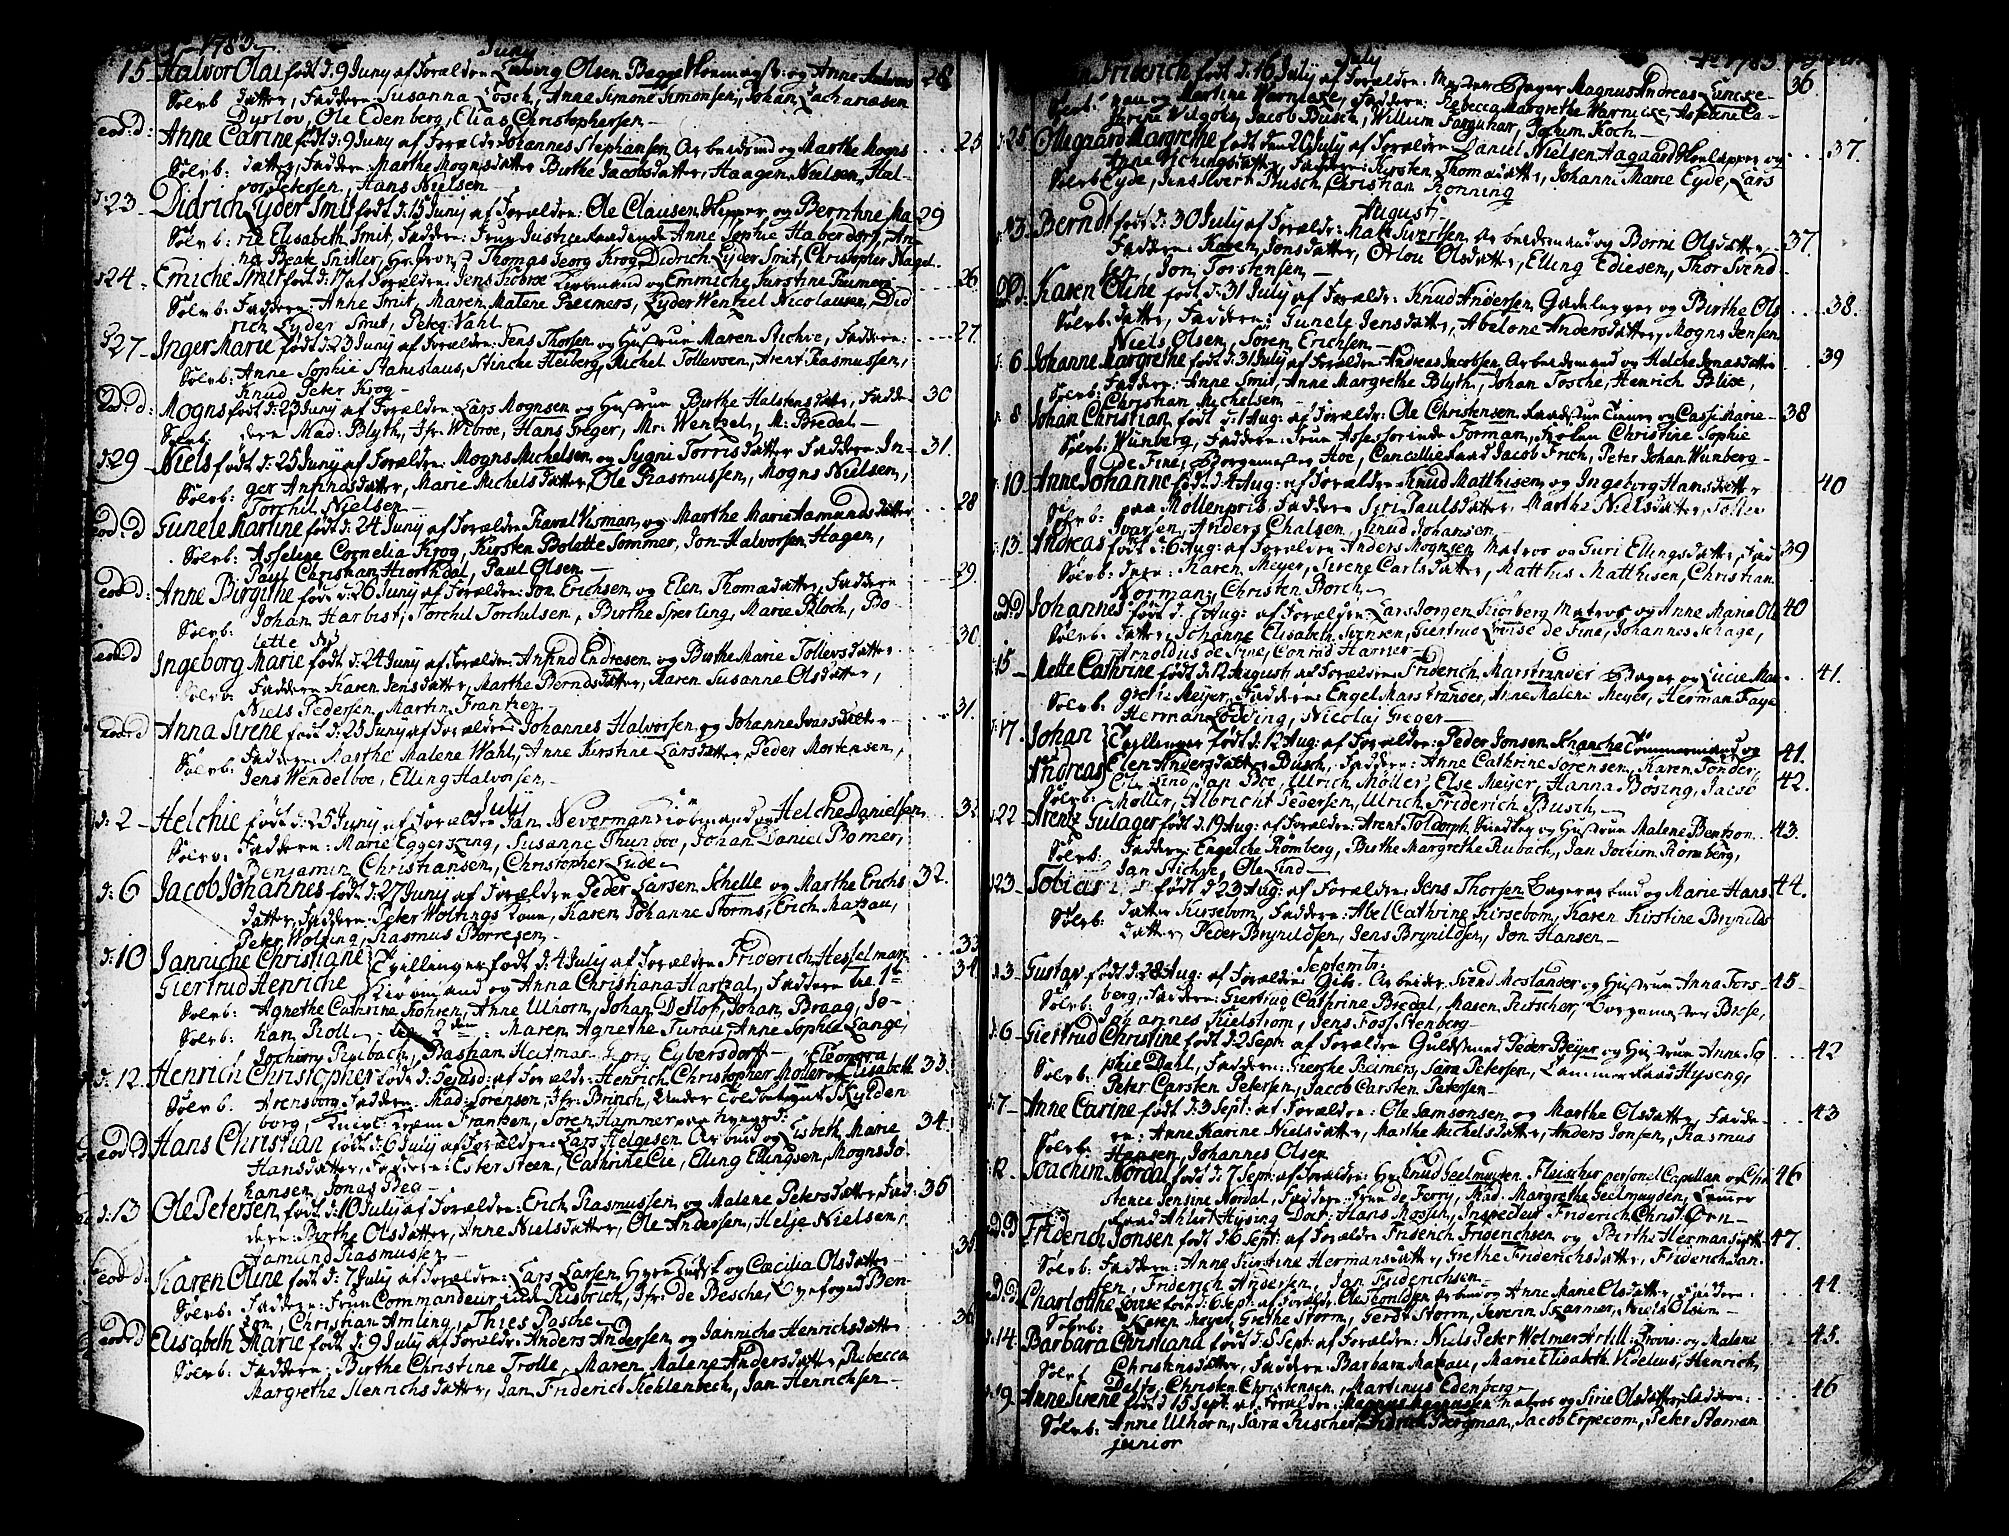 1783
Juny
15 Halvor Olai født d: 9 Juny af Forældre Ludvig Olsen Bagge og Anne 28
Sølvb datter, Faddere Susanna Losch, Anne Simone Simonsen, Johan Zachariasen
Dyrlov, Ole Edenberg, Elias Christophersen
eod: d: Anne Carine født d: 9 Juny af Forældre Johannes Stephansen Arbeidsmd og Marthe Mogns 25
Sølvb: datter, Faddere Marthe Mognsdatter Birthe Jacobsdatter, Haagen Nielsen, Hal-
vor Petersen, Hans Nielsen
d: 23 Didrich Lyder Smit født d: 15 Juny af Forældre: Ole Clausen og Bernthne Ma 29
Sølvb: rie Elisabeth Smit, Faddere: Anne Sophie Haberdorf, An-
ne Beate Snitler, Thomas Georg Krog, Didrich Lyder Smit, Christopher Nagel
d 24 Emiche Smit født d: 17 af Forældre Jens Kiøbmand og Emmiche Kirstine 26
Sølvb: Faddere: Anne Smit, Maren Malene Reimers, Lyder Wentzel Nicolausen, Did
rich Lyder Smit, Peter Vahl
d 27 Inger Marie født d: 23 Juny af Forældre: Jens Thorsen og Hustrue Maren Stichie, Faddere: 27
Sølvb: Anne Sophie Stanislaus, Stinche Heiberg, Michel Tollevsen, Arent Rasmussen,
Knud Peter Krog
eod: d: Mogns født d: 23 Juny af Forældre Lars Mognsen og Hustrue Birthe Halstensdatter, Fadde 30
Sølvb: dere Mad: Blyth, Jfr Wibroe, Hans Greger, Mr. Wentzel, M: Bredal
d: 29 Niels født d: 25 Juny af Forældre: Mogns Michelsen og Sygni Torrisdatter Faddere In- 31.
Sølvb: ger Anfindsdatter, Marie Michelsdatter, Ole Rasmussen, Mogns Nielsen,
Torchil Nielsen
eod: d Gunele Martine født d: 24 Juny af Forældre Visman og Marthe Marie Aamundsdatter 28
Sølvb: Asselige Cornelia Krog, Kirsten Bolette Sommer, Jon Halvorsen Hagen,
Paul Christian Hiorthdal, Paul Olsen
eod d: Anne Birgithe født d: 26 Juny af Forældre: Jon Erichsen og Elen Thomædatter, Faddere 29
Sølvb: Johan Harbist, Torchil Torchelsen, Birthe Sperling, Marie Bloch, Bo-
lette
eod: d Ingeborg Marie født d: 24 Juny af Forældre: Anfind Endresen og Birthe Marie Tollevsdatter 30
Sølvb: Faddere Karen Jensdatter, Marthe Berndsdatter, Karen Susanne Olsdatter,
Niels Pedersen, Martin Frantzen
eod: d Anna Sirene født d: 23 Juny af Forældre Johannes Halvorsen og Johanne Ivarsdatter 31.
Sølvb: Faddere: Marthe Malene Wahl, Anne Kirstine Larsdatter, Peder Mortensen,
Jens Wendelboe, Elling Halvorsen
July
d: 2 Helchie født d: 25 Juny af Forældre Jan Neverman Kiøbmand og Helche Danielsen 32
Sølvb: Faddere: Marie Eggerking, Susanne Thunboe, Johan Daniel Bomer,
Benjamin Christiansen, Christopher Lude
d: 6 Jacob Johannes født d: 27 Juny af Forældre Peder Larsen Schelle og Marthe Erichs 32.
datter, Faddere: Peter Woltings Kone, Karen Johanne Storms, Erich Matzau,
Peter Wolting, Rasmus Borresen
d: 10 Janniche Christiane } Tvillinger født d: 4 July af Forældre Friderich Hesselman 33
Giertrud Henriche Kiøbmand og Anna Christiana Hartzal, Faddere til 1te 34
Sølvb: Agnethe Cathrine Kohren, Anne Ulhorn, Johan Detlof, Johan Braag, Jo-
Sølvb: han Roll, til 2den: Maren Agnethe Turau, Anne Sophie Lange,
Jochum Rubach, Bastian Heitman, Georg Eybersdorff Eleonora
d: 12. Henrich Christopher født d: 5 af Forældre: Henrich Christopher Møller og Elisabeth 33.
Sølvb. Arensborg, Faddere: Mad: Sørensen, Jfr: Brinch, Under Toldbetient Skylden
borg, Franken, Søren Hammer
eod d Hans Christian født d: 6 July af Forældre: Lars Helgesen Arbmd og Lisbeth Marie 34.
Hansdatter, Faddere: Ester Steen, Cathrine Lie, Elling Ellingsen, Mogns Jo-
hansen, Jonas Beg
d: 13 Ole Petersen født d: 10 July af Forældre: Erich Rasmussen og Malene Petersdatter, Fad 35
dere: Birthe Olsdatter, Anne Nielsdatter, Ole Andersen, Helje Nielsen,
Aamund Rasmussen
eod: d: Karen Oline født d: 7 July af Forældre: Lars Larsen og Cæcilia Olsdatter 35
Sølvb: Faddere: Frue Commandeurinde Risbrich, Jfr: de Besche, Byefoged Ben-
zon, Christian Amling, Thies Pasche
eod: d Elisabeth Marie født d: 9 July af Forældre Anders Andersen og Janniche Henrichsdatter 36
Sølvb: Faddere: Birthe Christine Trolle, Maren Malene Andersdatter, Rebecca
Margrethe Henrichsdatter, Jan Friderich Kehlenbech, Jan Henrichsen
July 1783
Friderich født d: 16 July af Forældre: Mester Bager Magnus Andreas 36
Sølvb: og Martine Warnicke, Faddere: Rebecca Margrethe Warnicke, Asseline Ca-
thrine Wilgohs, Jacob Busch, Willum Farquhar, Jochum Koch
d: 25 Margrethe født den 20 July af Forældre Daniel Nielsen Aagaard og 37.
Anne Faddere: Kirsten Thomædatter, Johanne Marie Eyde, Lars
Sølvb Eyde, Jens Ivert Busch, Christian Rønning
August
3 Berndt født d: 30 July af Forældre: Mats Sivertsen Arbeidsmand og Borni Olsdatter, 37.
Faddere: Karen Jonsdatter, Orlou Olsdatter, Elling Ediesen, Thor Svend
sen, Jon Torstensen
eod: d. Karen Oline født d: 31 July af Forældre: Knud Andersen Gadelegger og Birthe Ols 38.
Sølvb: datter, Faddere: Gunele Jensdatter, Abelone Andersdatter, Mogns Jensen
Niels Olsen, Søren Erichsen
d: 6 Johanne Margrethe født d: 31 July af Forældre: Andreas Jacobsen Arbeidsmand og Helche Jonasdatter 39
Sølvb: Faddere: Anne Smit, Anne Margrethe Blyth, Johan Tosche, Henrich Blixe,
Christian Michelsen
d: 8 Johan Christian født d: 1 Aug: af Forældre: Ole Christensen og Cassi Marie 38
Sølvb: Wunberg, Faddere: Frue Assessorinde Forman, Frøken Christine Sophie
de Fine, Borgemester Hoe, Cancellieraad Jacob Frich, Peter Johan Wunberg
d: 10 Anne Johanne født d: 4 Aug: af Forældre Knud Matthisen og Ingeborg Hansdatter 40
Sølvb: paa Møllenpris, Faddere Siri Paulsdatter, Marthe Nielsdatter, Tollev
Ivarsen, Anders Chalsen, Knud Johansen
d: 13. Andreas født d: 6 Aug: af Forældre Anders Mognsen Matros og Guri Ellingsdatter, Fad 39
Sølvb: dere: Karen Meyer, Sirene Carlsdatter, Matthis Matthisen, Christian
Norman, Christen Borch
eod: d Johannes født d: 7 Aug: af Forældre: Lars Jørgen Kiørberg Matros og Anne Marie Ols 40
Sølvb. datter, Johanne Elisabeth Svensen, Giertrud Lovise de Fine, Johannes Schage,
Arnoldus de Fine, Conrad Harner
d: 15 Mette Cathrine født d: 12 August af Forældre: Friderich Marstrander Bager og Lucie Mar 41.
Sølvb: grethe Meyer, Faddere: Engel Marstrander, Anne Malene Meyer, Herman Faye
Herman Lødding, Nicolaj Greger
d: 17 Johan } Tvillinger født d: 12 Aug: af Forældre: Peder Jonsen Knanche Tømmermand og 41.
Andreas Elen Andersdatter Busch, Faddere: Anne Cathrine Sørensen, Karen Tønder,
Sølvb: Ole Lind, Jan Boe, Ulrich Møller, Else Meyer, Hanna Bøsing, Jacob 42.
Møller, Albricht Pedersen, Ulrich Friderich Busch
d 22 Arentz Gulager født d: 19 Aug: af Forældre: Arent Toldorph og Hustrue Malene Bentzon 43.
Sølvb: Faddere: Engelche Romberg, Birthe Margrethe Rubach, Jan Jochim Romberg,
Jan Stichie, Ole Lind
d 23 Tobias født d 23 Aug: af Forældre: Jens Thorsen og Marie Hans 44.
Sølvb datter Kirsebom, Faddere: Abel Cathrine Kirsebom, Karen Kirstine Brynilds
datter, Peder Brynildsen, Jens Brynildsen, Jon Hansen
Septembr:
d: 3 Gustav født d: 28 Aug: af Forældre: Arbeider Svend Moslander og Hustrue Anna Fors 45
Sølvb: berg, Faddere: Giertrud Cathrine Bredal, Maren Ritscher, Borgemester Brese,
Johannes Kielstrøm, Jens Foss Stenberg
d: 6 Giertrud Christine født d: 2 Sept: af Forældre Guldsmed Peder Beyer og Hustrue Anne So 42
Sølvb: phie Dahl, Faddere: Gierche Reimers, Sara Petersen, Cammerraad Hyseng,
Peter Carsten Petersen, Jacob Carsten Petersen
d: 7 Anne Carine født d: 3 Sept: af Forældre: Ole Samsonsen og Marthe Olsdatter, Fadde 43
Sølvb: re: Anne Karine Nielsdatter, Marthe Michelsdatter, Anders Jonsen, Rasmus
Hansen, Johannes Olsen
d: 12 Joachim Nordal født d: 7 Sept: af Forældre: Hr Knud Geelmuyden Fleischer personel Capellan og Chri 46
stence Jensine Nordal, Faddere: Frue de Ferry, Mad: Margrethe Geelmuyden, Cammer
raad Ahlert Hysing, Doct: Hans Mossin, Inspecteur Friderich Christ: Orn
eod: d Friderich Jonsen født d: 6 Sept: af Forældre Friderich Friderichsen og Birthe Hermansdatter 47.
Sølvb: Faddere: Anne Kirstine Hermansdatter, Grethe Friderichsdatter, Friderich Jan-
sen, Friderich Andersen, Jan Friderichsen
eod: d Charlotthe Lovise født d: 6 Sept: af Forældre Ole og Anne Marie Olsdatter, Faddere: 44
Sølvb: Karen Meyer, Grethe Storm, Gerdt Storm, Severin Skarmer, Niels Olsen
d: 14. Barbara Christiana født d: 8 Sept: af Forældre: Niels Peter Wolmer Artill: og Malene 45.
Sølvb Christensdatter, Faddere: Barbara Matzau, Marie Elisabeth Videlius, Henrich
Delfs, Christen Christensen, Martinus Edenberg
d: 19. Anne Sirene født d: 15 Sept: af Forældre: Magnus Magnusen Matros og Sirie Olsdatter, Faddere: 46
Sølvb: Anne Ulhorn, Sara Fischer, Didrich Bergman, Jacob Erpecom, Peter Staman
junior